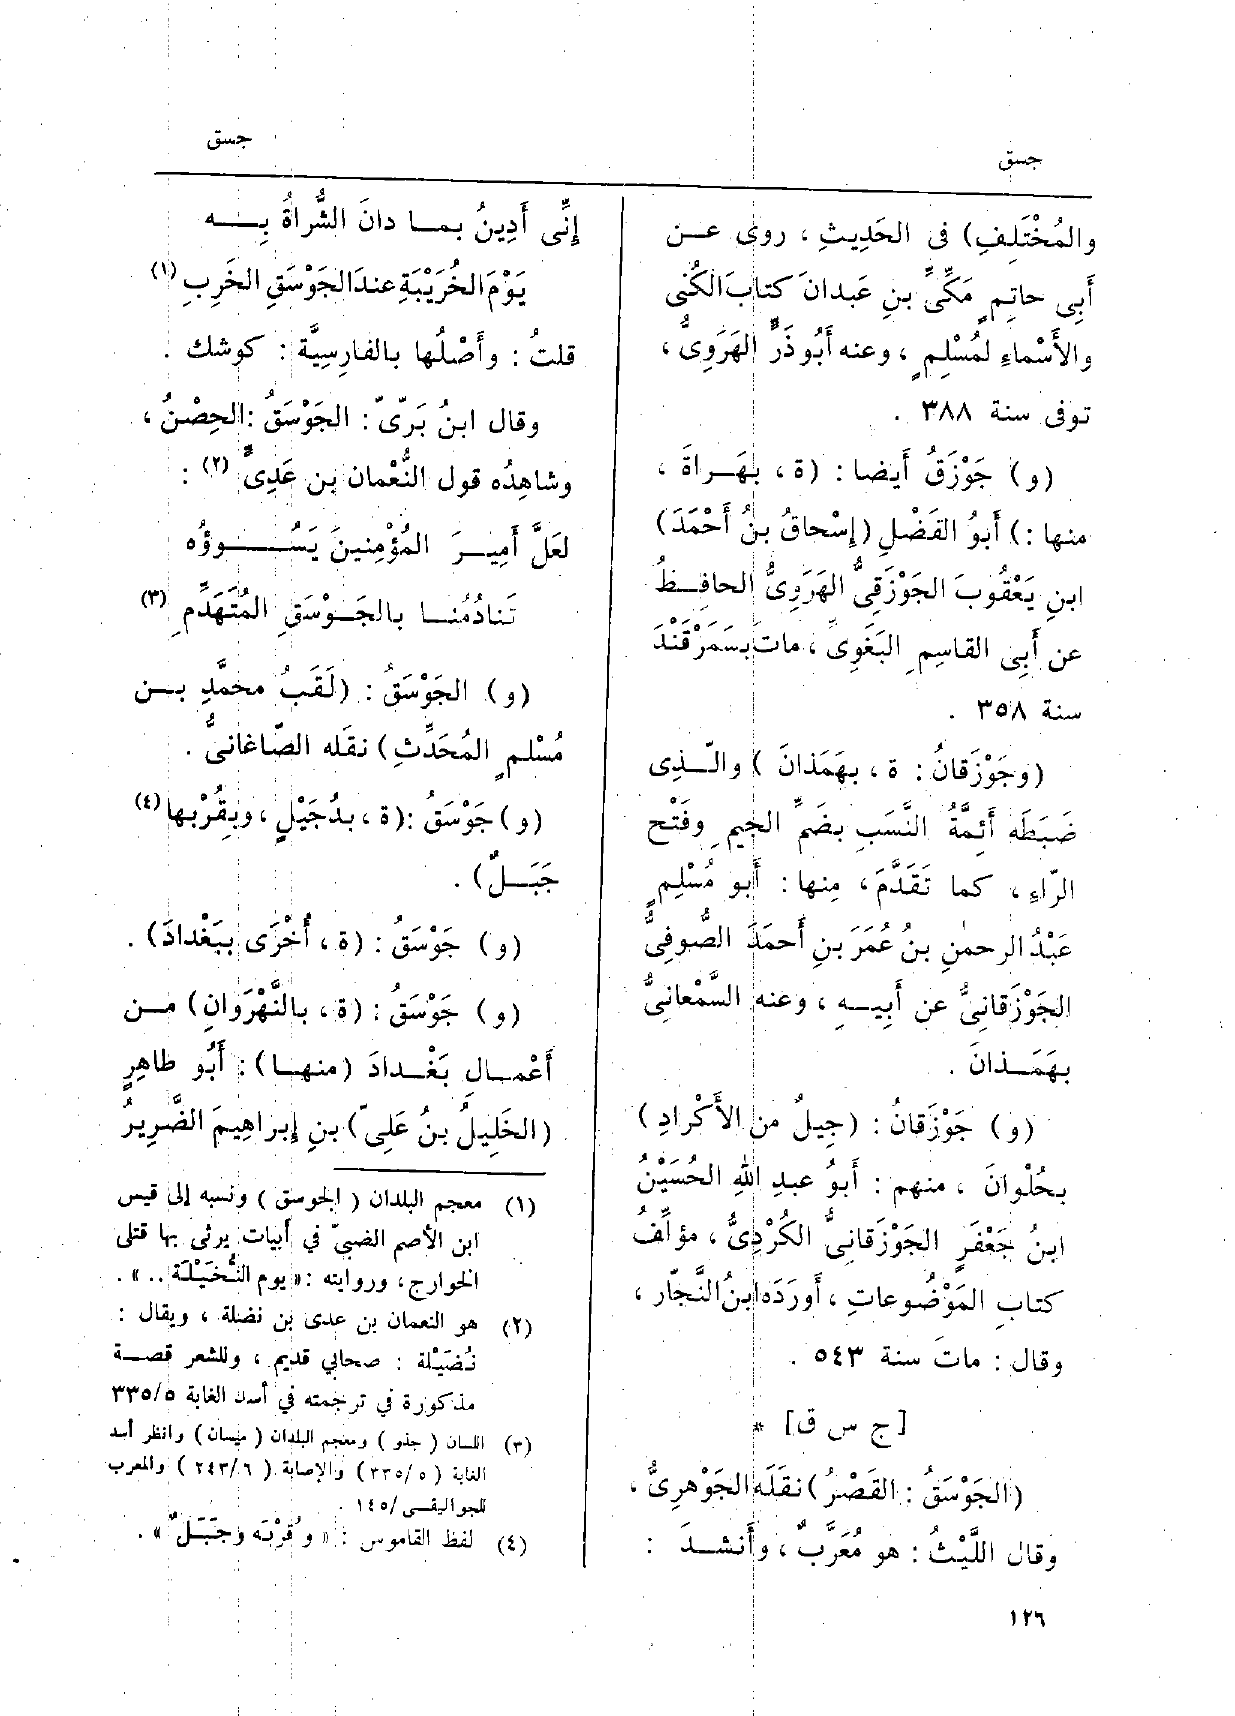 جسق
جسق
والمُخْتَلِفِ) فى الحَدِيثِ ، روى عـن
أَبِى حاتِمٍ مَكِّىِّ بنِ عَبدانَ كتابَ الكُنى
والأَسْماءِ لمُسْلِمٍ ، وعنه أَبُو ذَرٍّ الهَرَوِىُّ ،
توفى سنة ٣٨٨ .
(و) جَوْزَقُ أَيضا : (ة ، بهَـراةَ ،
منها :) أَبُو الفَضْلِ (إِسْحاقُ بنُ أَحْمَدَ)
ابنِ يَعْقُوبَ الجَوْزَقِىُّ الهَرَوِىُّ الحافِـظُ
عن أَبِى القاسِمِ البَغَوِىِّ ، ماتَ بسَمَرْقَنْدَ
سنة ٣٥٨ .
(وجَوْزَقانُ : ة ، بهَمَذانَ ) والّـذِى
ضَبَطَه أَئِمَّةُ النَّسَبِ بضَمِّ الجِيمِ وفَتْحِ
الرّاءِ ، كما تَقَدَّمَ ، مِنها : أَبو مُسْلِمٍ
عَبْدُ الرحمٰنِ بنُ عُمَرَ بنِ أَحمَدَ الصُّوفِىُّ
الجَوْزَقانِىُّ عن أَبِيـهِ ، وعنه السَّمْعانِىُّ
بهَمَـذانَ .
(و) جَوْزَقانُ : (جِيلٌ من الأَكْرادِ )
بحُلْوانَ ، منهم : أَبُو عبدِ اللهِ الحُسَيْنُ
ابنُ جَعْفَرٍ الجَوْزَقانِىُّ الكُرْدِىُّ ، مؤلِّفُ
كتابِ المَوْضُوعاتِ ، أَورَدَه ابنُ النَّجّار ،
وقال : ماتَ سنة ٥٤٣ .
[ج س ق] *
(الجَوْسَقُ : القَصْرُ) نقَلَه الجَوْهرِىُّ ،
وقال اللَّيْثُ : هو مُعَرَّبٌ ، وأَنشـدَ :
إِنِّى أَدِينُ بمـا دانَ الشُّراةُ بِـــه
يَوْمَ الخُرَيْبَةِ عندَ الجَوْسَقِ الخَرِبِ (١)
قلتُ : وأَصْلُها بالفارِسِيَّة : كوشك .
وقال ابنُ بَرِّىّ : الجَوْسَقُ : الحِصْنُ ،
وشاهِدُه قول النُّعْمان بن عَدِىٍّ (٢) :
لعَلَّ أَمِيـرَ المُؤْمِنينَ يَسُـــوؤُه
تَنادُمُنـا بالجَـوْسَقِ المُتَهَدِّمِ (٣)
(و) الجَوْسَقُ : (لَقَبُ محمَّدِ بـن
مُسْلمٍ المُحَدِّثِ ) نقَله الصّاغانىُّ .
(و) جَوْسَقُ :(ة ، بدُجَيْلٍ ، وبقُرْبِها (٤)
جَبَـلٌ) .
(و) جَوْسَقُ : (ة ، أُخْرَى ببَغْدادَ) .
(و) جَوْسَقُ : (ة ، بالنَّهْرَوانِ) مـن
أَعْمـالِ بَغْـدادَ (منهـا) : أَبُو طاهِرٍ
(الخَلِيلُ بنُ عَلِىّ) بنِ إِبراهِيمَ الضَّرِيرُ
(١) معجم البلدان ( الجوسق ) ونسبه إلى قيس
ابن الأصم الضبيّ في أبيات يرثى بها قتلى
الخوارج ، وروايته :« يوم النُّخَيْلَة .. » .
(٢) هو النعمان بن عدى بن نضلة ، ويقال :
نُضَيْلة : صحابي قديم ، وللشعر قصة
مذكورة في ترجمته في أسد الغابة ٣٣٥/٥
(٣) اللسان ( جذو ) ومعجم البلدان ( ميسان ) وانظر أسد
الغابة ( ٣٣٥/٥ ) والإصابة ( ٢٤٣/٦ ) والمعرب
للجواليقى /١٤٥ .
(٤) لفظ القاموس : « وقُرْبَه وجَبَلٌ » .
١٢٦